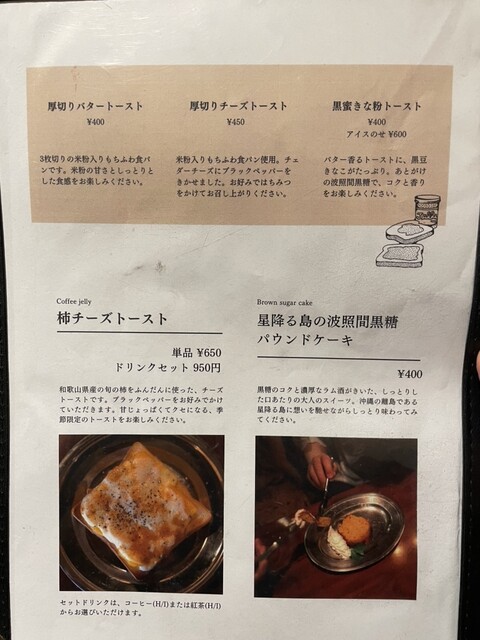 厚切りバタートースト
¥400
3枚切りの米粉入りもちふわ食パ
ンです。米粉の甘さとしっとりと
した食感をお楽しみください。
厚切りチーズトースト
¥450
米粉入りもちふわ食パン使用。チェ
ダーチーズにブラックペッパーを
きかせました。お好みではちみつ
をかけてお召し上がりください。
黒蜜きな粉トースト
¥400
アイスのせ ¥600
バター香るトーストに、黒豆
きなこがたっぷり。あとがけ
の波照間黒糖で、コクと香り
をお楽しみください。
Coffee jelly
柿チーズトースト
単品 ¥650
ドリンクセット 950円
和歌山県産の旬の柿をふんだんに使った、チーズ
トーストです。ブラックペッパーをお好みでかけ
ていただきます。甘じょっぱくてクセになる、季
節限定のトーストをお楽しみください。
セットドリンクは、コーヒー(H/I)または紅茶(H/I)
からお選びいただけます。
Brown sugar cake
星降る島の波照間黒糖
パウンドケーキ
¥400
黒糖のコクと濃厚なラム酒がきいた、しっとりし
た口あたりの大人のスイーツ。沖縄の離島である
星降る島に想いを馳せながらしっとり味わってみ
てください。